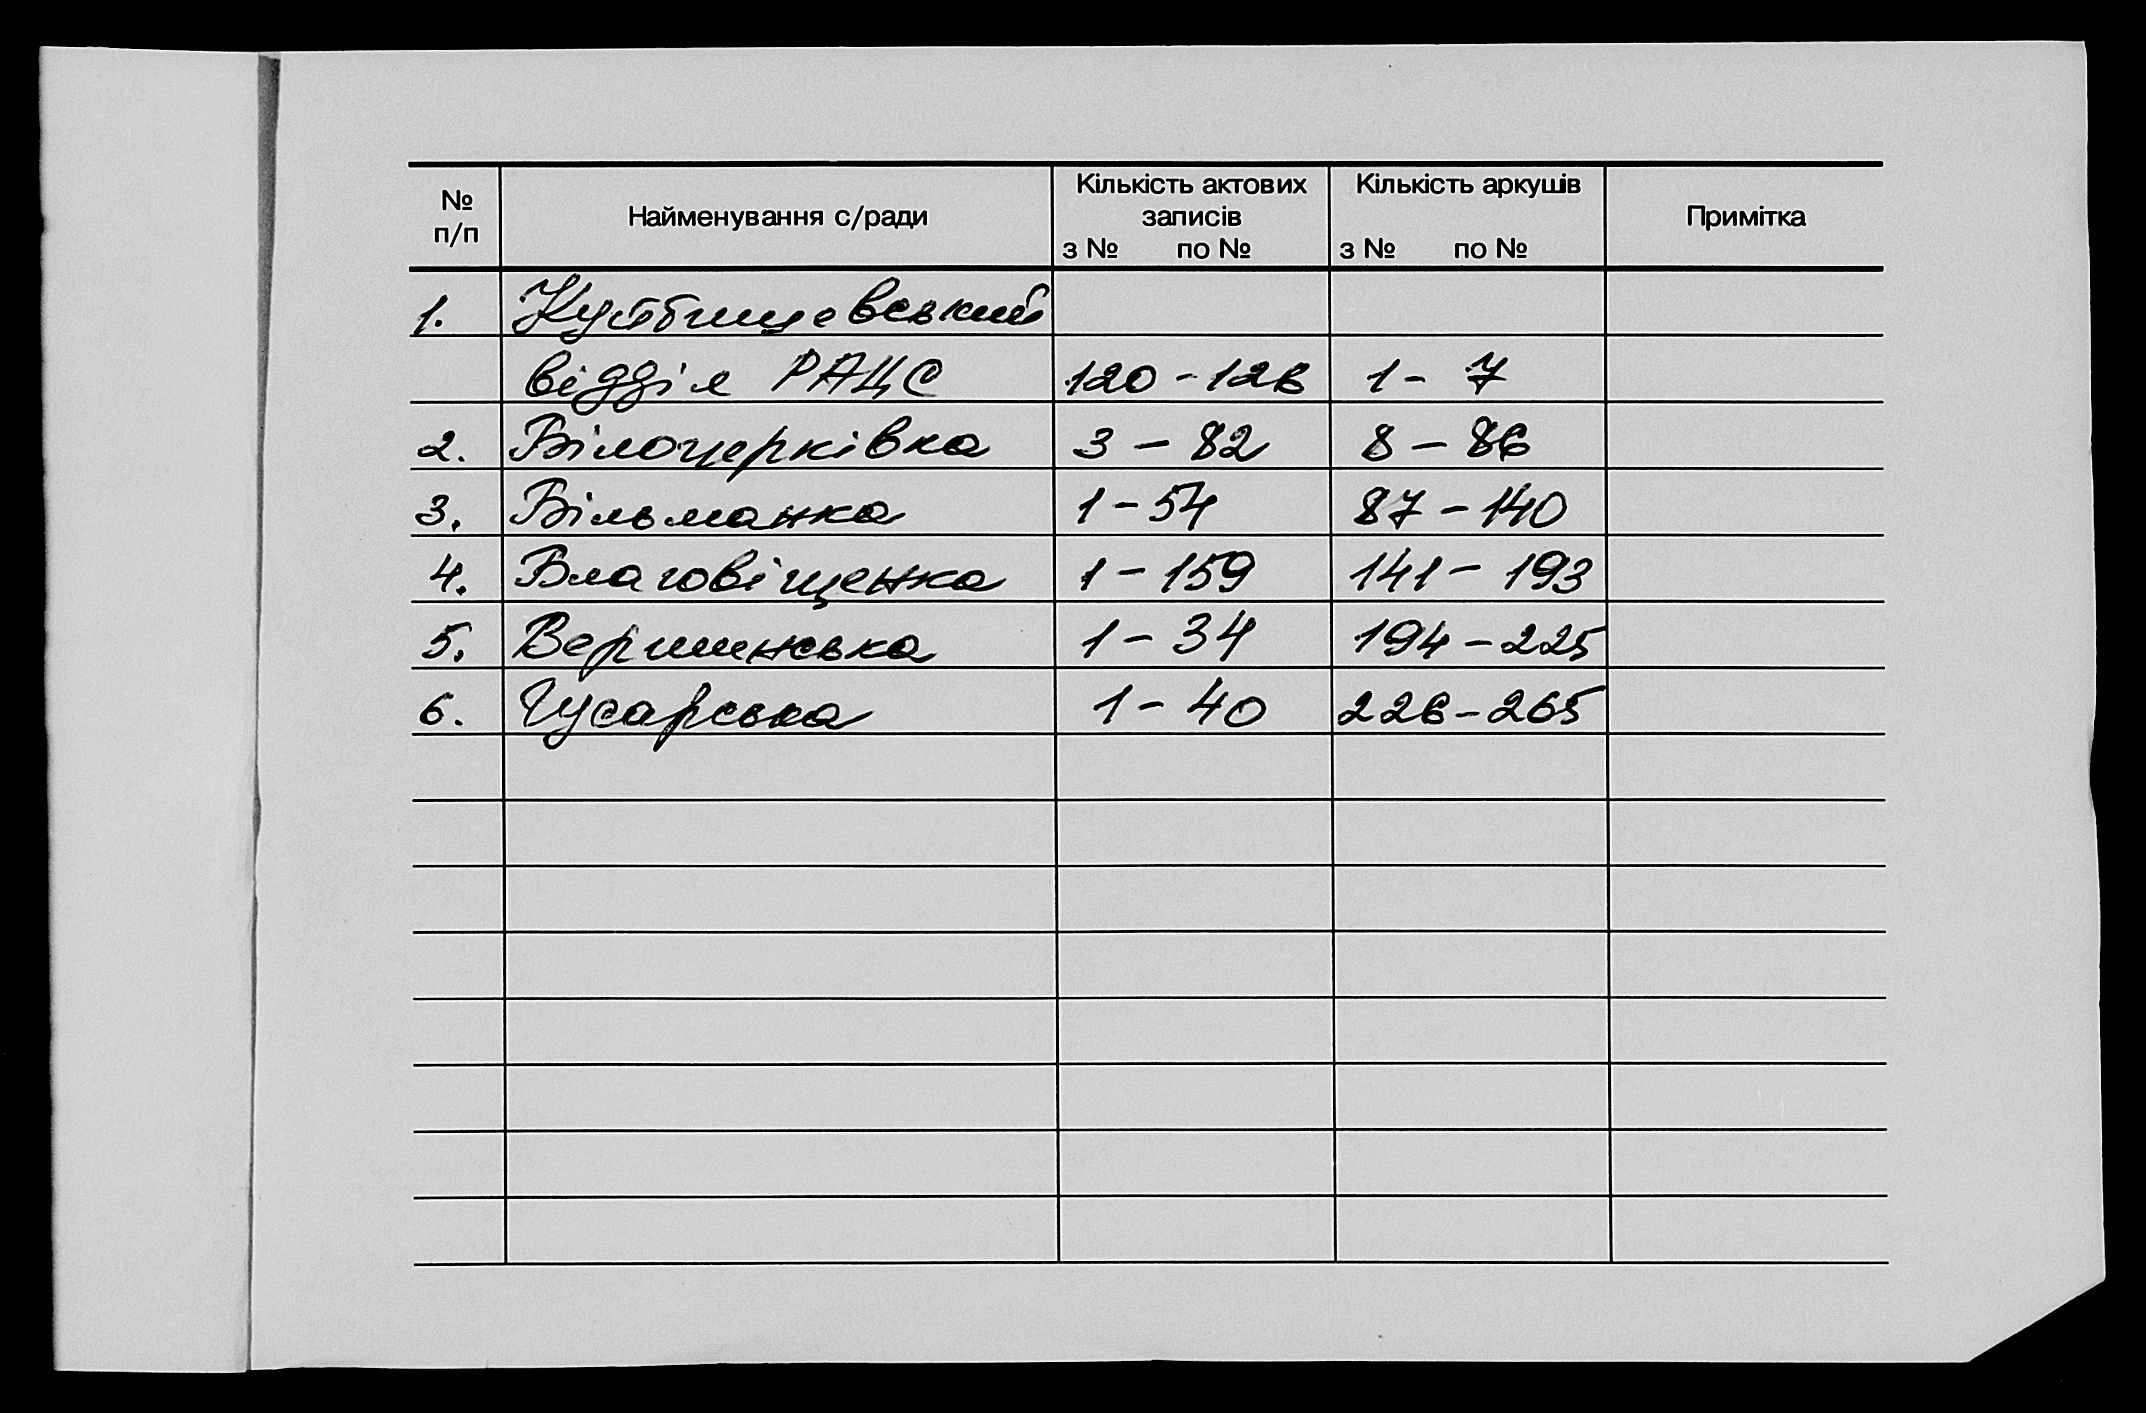 № п/п Найменування с/ради Кількість актових записів з № по № Кількість аркушів з № по № Примітка
1. Куйбишевський
відділ РАЦС 120-126 1-7
2. Білоцерківка 3-82 8-86
3. Більманка 1-54 87-140
4. Благовіщенка 1-159 141-193
5. Вершинська 1-34 194-225
6. Гусарська 1-40 226-265